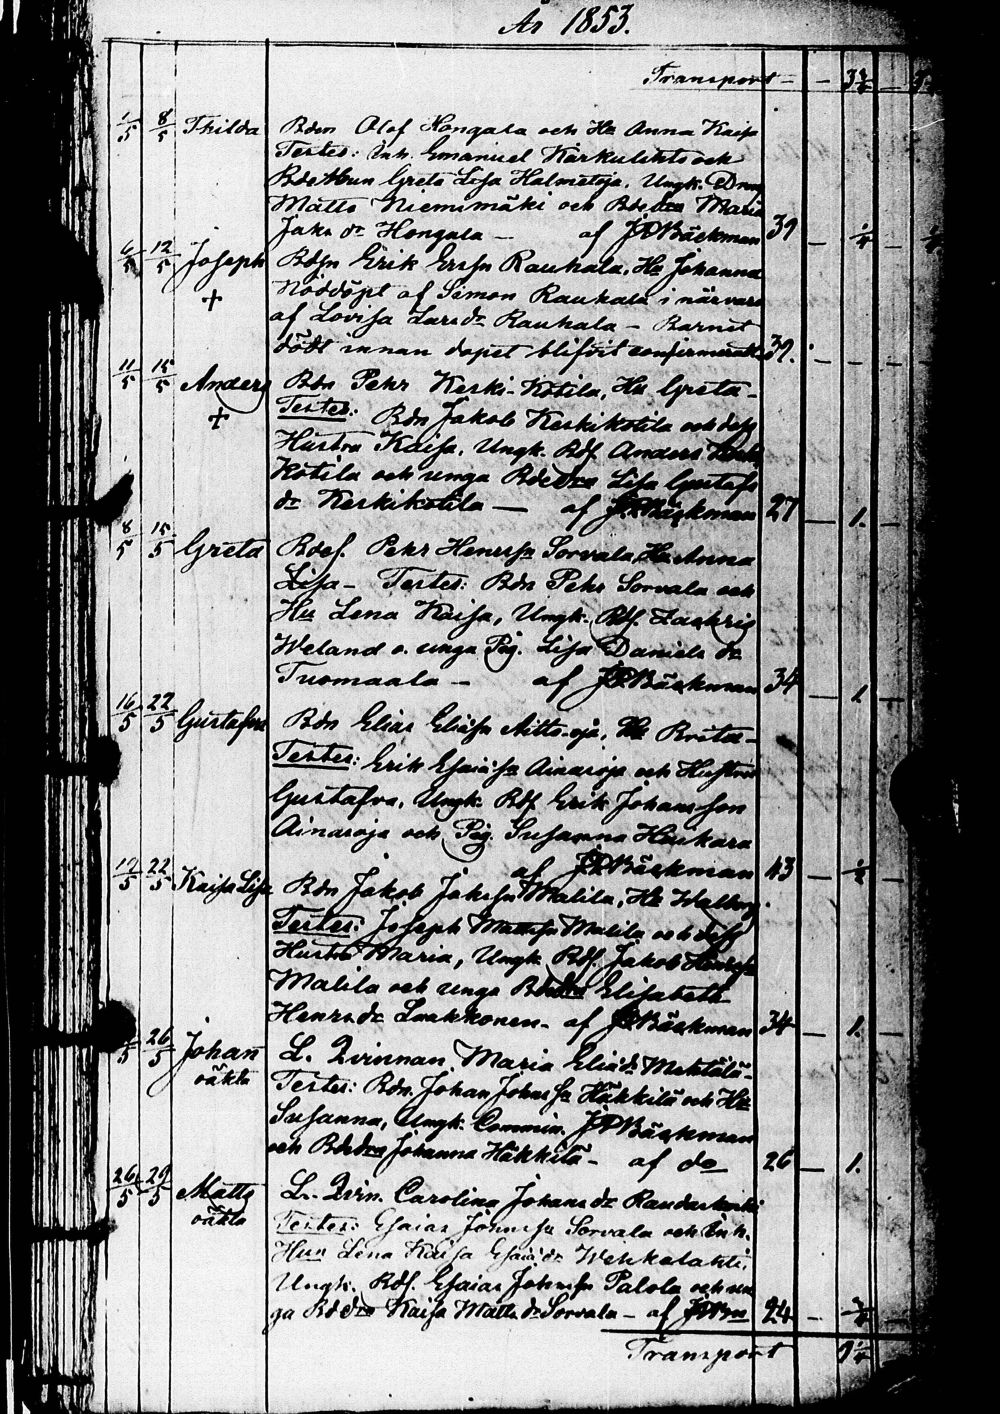 År 1853.
Transport – – 3 3/4 –
1/5 8/5 Thilda Bdn Olof Hongala och Hu Anna Kaisa
Testes: Inh. Emanuel Karkulehto och
Bde Hun Greta Lisa Halmetoja, Ungk. Dräng
Matts Niemimäki och Bde dra Maria
Jaks dr Hongala – af JPBäckman 39 – 1/4 –
6/5 12/5 Joseph Bdsn Erik Erssn Rauhala, Hu Johanna
+ Nöddöpt af Simon Rauhala i närvaro
af Lovisa Lars dr Rauhala – Barnet
dödt innan dopet blifvit confirmeradt 39. – – –
11/5 15/5 Anders Bdn Pehr Keski-Kotila, Hu Greta –
+ Testes: Bdn Jakob Keskikotila och dess
Hustru Kaisa, Ungk. Bdf. Anders
Kotila och unga Bde dra Lisa Gustafs
dr Keskikotila – af JPBäckman 27 – 1. –
8/5 15/5 Greta Bdef. Pehr Henrssn Sorvala, Hu Anna
Lisa – Testes: Bdn Pehr Sorvala och
Hu Lena Kaisa, Ungk. Bdf. Zachris
Weland o. unga Pig. Lisa Daniels dr
Tuomaala – af JPBäckman 34 – 1 –
16/5 22/5 Gustafva Bdn Elias Eliassn Aitto-oja, Hu Brita –
Testes: Erik Esaiassn Ainasoja och Hustru
Gustafva, Ungk. Bdf Erik Johansson
Ainasoja och Pig. Susanna Haukara
af JPBäckman 43 – 1/2 –
22/5 Kaisa Lisa Bdn Jakob Jakssn Malila, Hu Walborg.
Testes: Joseph Mattssn Malila och dess
Hustru Maria, Ungk. Bdf. Jakob Henrssn
Malila och unga Bdedra Elisabeth
Henrs dr Laakkonen – af JPBäckman 34 – 1. –
26/5 Johan L. Qvinnan Maria Elias dr Mehtälä –
oäkta Testes: Bdn. Johan Johnssn Häkkilä och Hu
Susanna, Ungk. Commin. JPBäckman
och Bdedra Johanna Häkkilä – af do 26 – 1.
26/5 29/5 Matts L. Qvin. Carolina Johans dr Raudaskoski
oäkta Testes: Esaias Johnssn Sorvala och Inh.
Hun Lena Kaisa Esaias dr Wehkalahti,
Ungk. Bdf. Esaias Johnssn Palola och un
ga Bdedra Kaisa Matts dr Sorvala – af JPBn 24 –
Transport